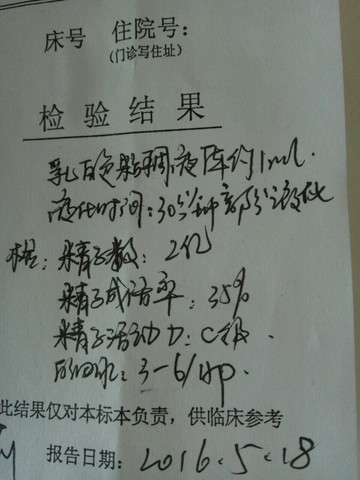 床号 住院号：
（门诊写住址）
检验结果
乳白色粘稠液体约1ml.
液化时间：30分钟部分液化
精子数：2亿
精子成活率：35%
精子活动力：C级.
白细胞：3-6/Hp.
此结果仅对本标本负责，供临床参考
报告日期：2016.5.18